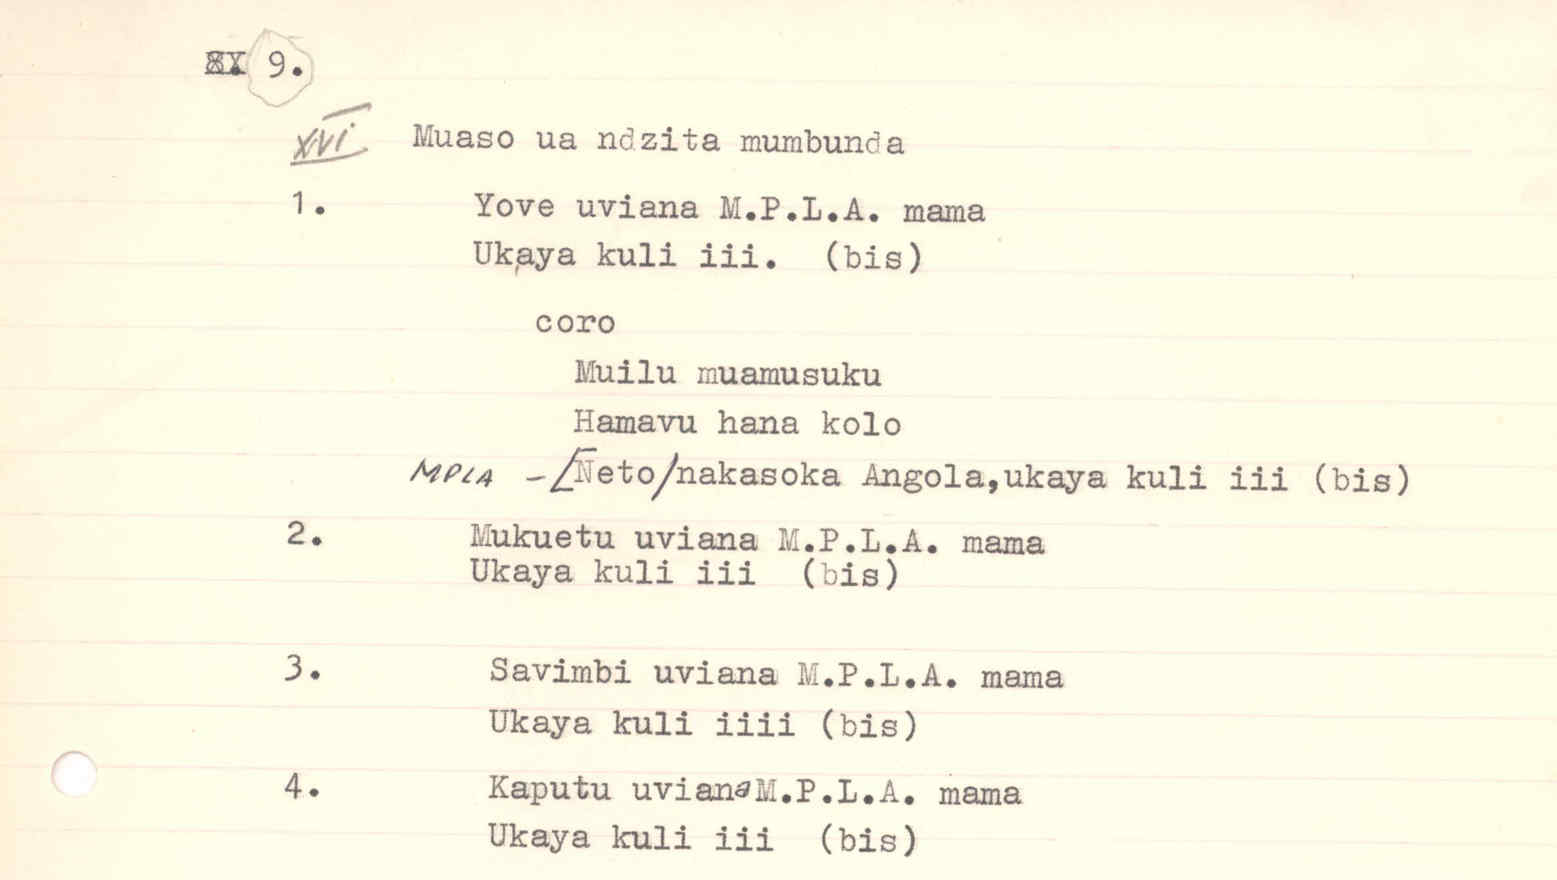 8X 9.
XVI Muaso ua ndzita mumbunda
1. Yove uviana M.P.L.A. mama
Ukaya kuli iii. (bis)
coro
Muilu muamusuku
Hamavu hana kolo
MPLA - [Neto/nakasoka Angola,ukaya kuli iii (bis)
2. Mukuetu uviana M.P.L.A. mama
Ukaya kuli iii (bis)
3. Savimbi uviana M.P.L.A. mama
Ukaya kuli iiii (bis)
4. Kaputu uviana M.P.L.A. mama
Ukaya kuli iii (bis)